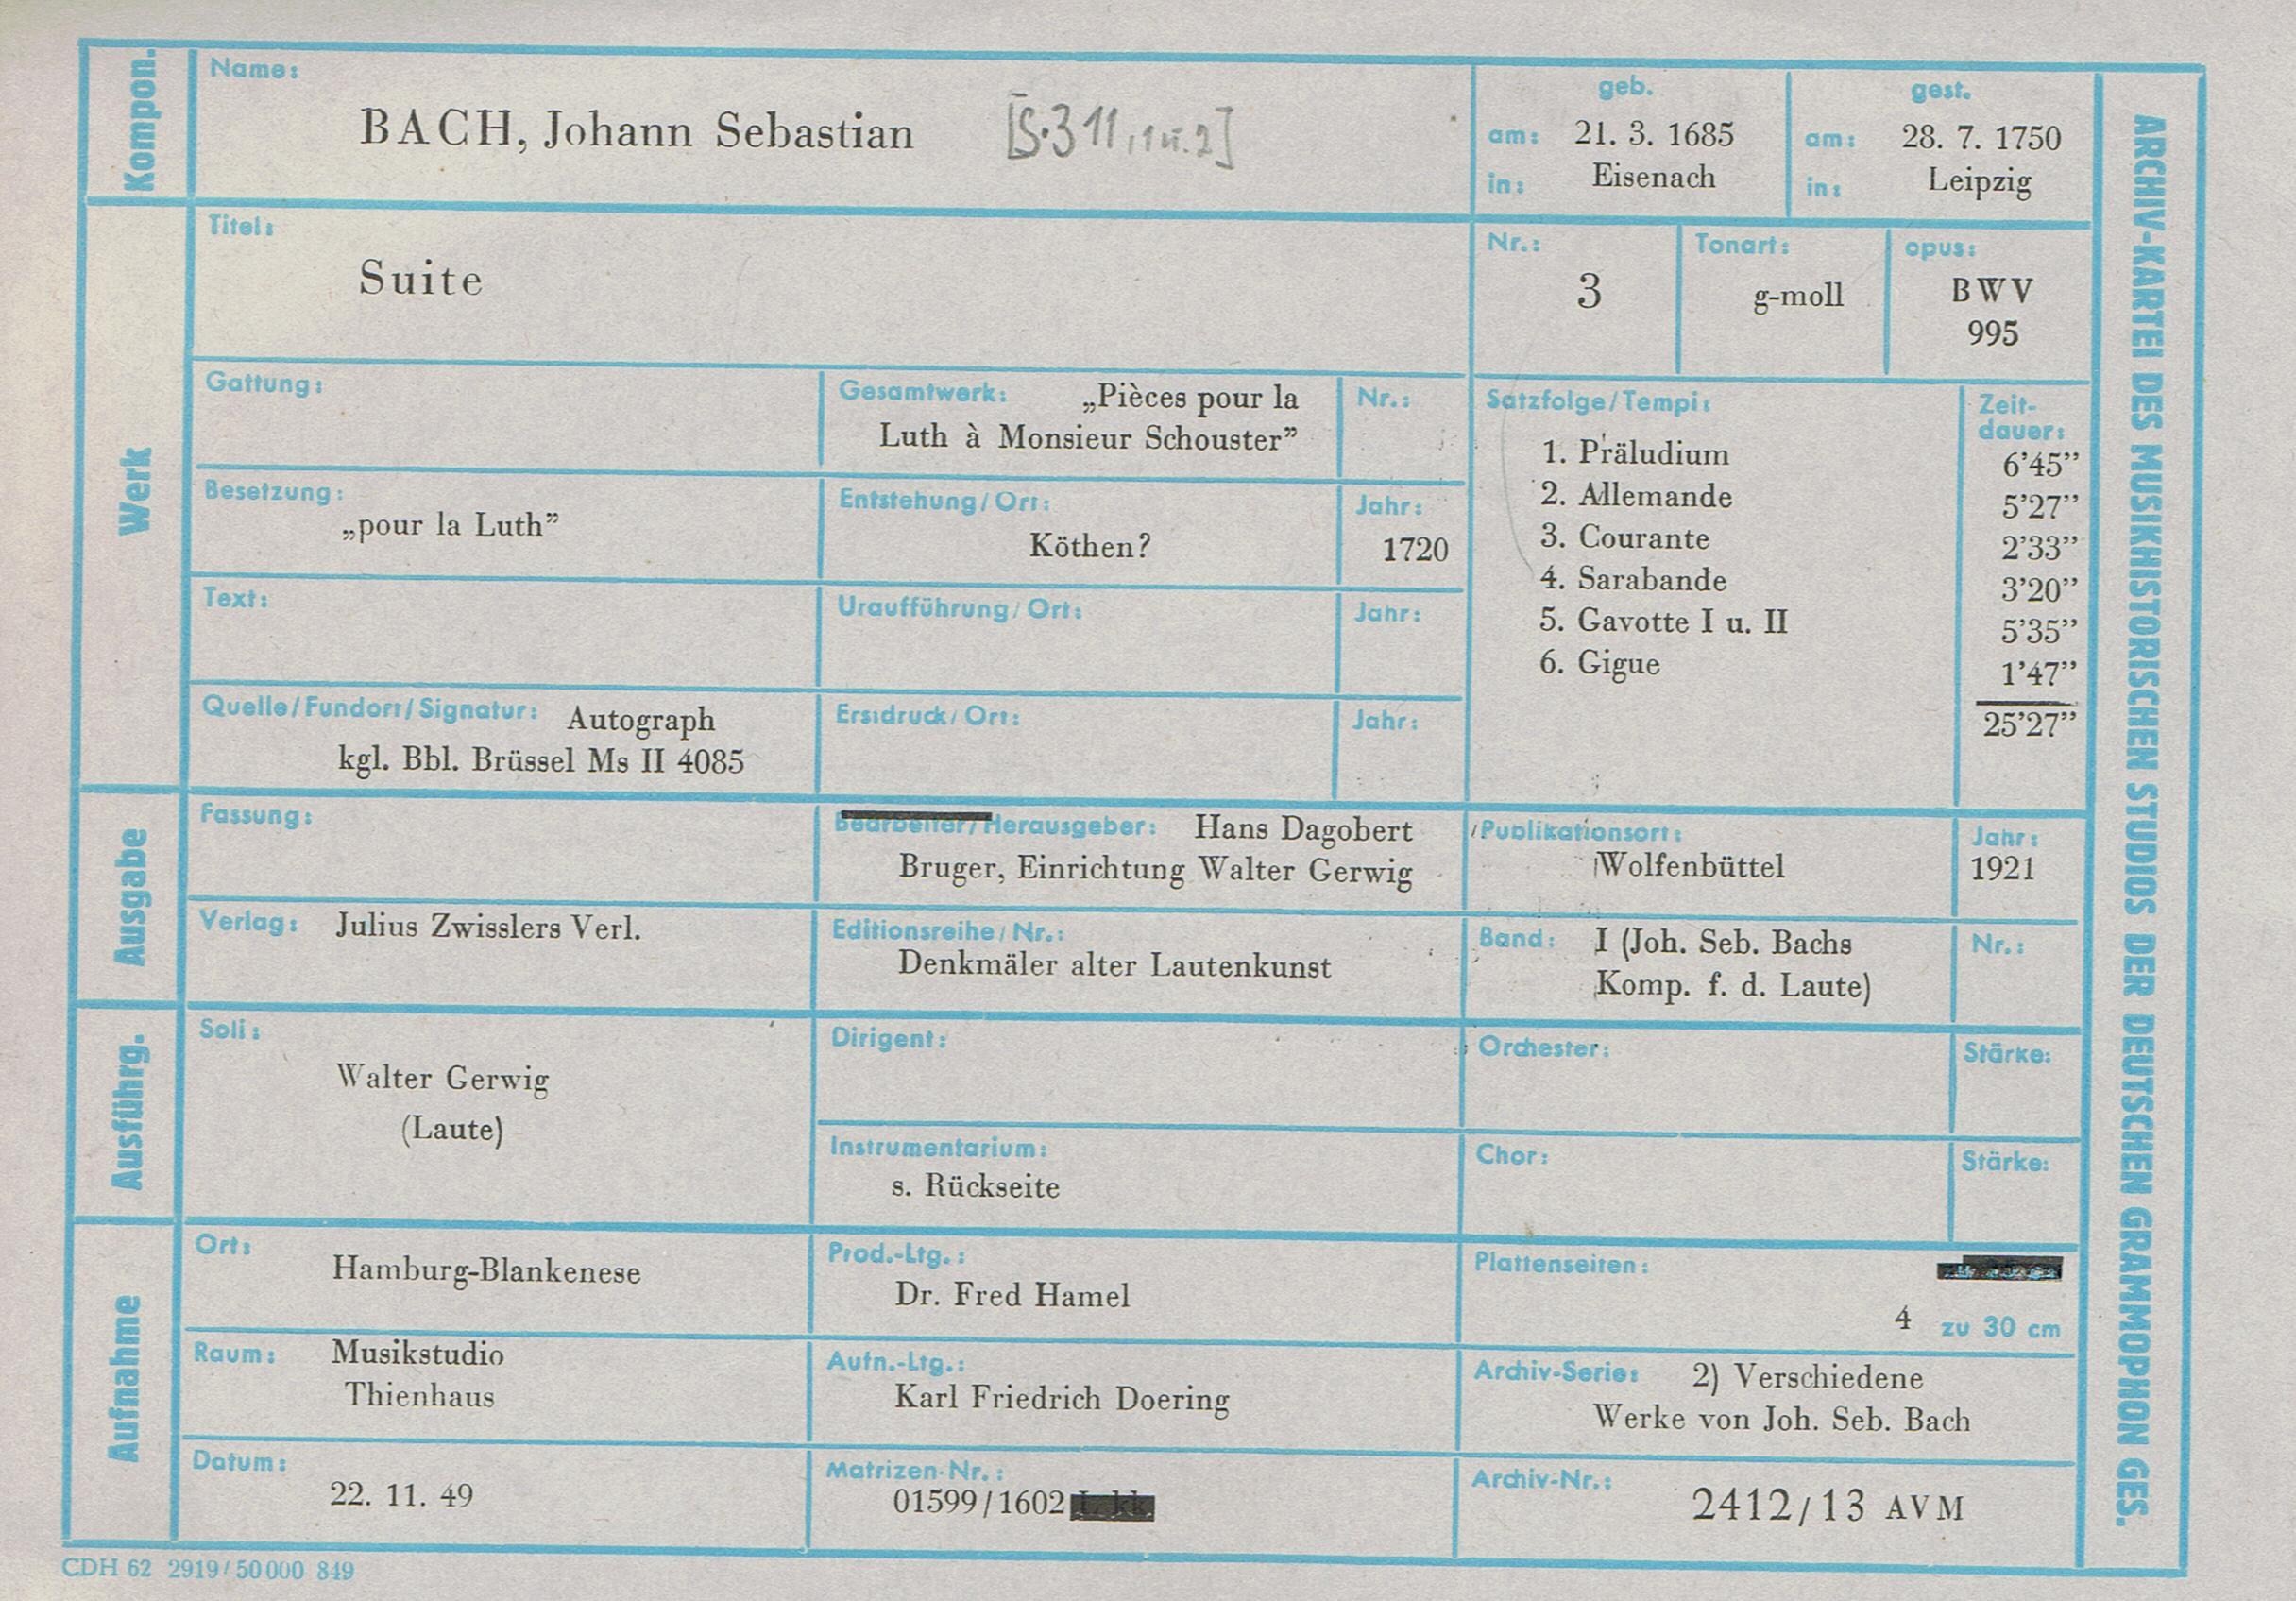 Kompon.
Name:
BACH, Johann Sebastian [S.311,1 u.2]
geb.
am: 21. 3. 1685
in: Eisenach
gest.
am: 28. 7. 1750
in: Leipzig
Werk
Titel:
Suite
Nr.:
3
Tonart:
g-moll
opus:
BWV
995
Gattung:
Gesamtwerk: „Pièces pour la
Luth à Monsieur Schouster”
Nr.:
Besetzung:
„pour la Luth”
Entstehung/Ort:
Köthen?
Jahr:
1720
Text:
Uraufführung/Ort:
Jahr:
Quelle/Fundort/Signatur: Autograph
kgl. Bbl. Brüssel Ms II 4085
Erstdruck/Ort:
Jahr:
Satzfolge/Tempi:
Zeit-
dauer:
1. Präludium 6’45”
2. Allemande 5’27”
3. Courante 2’33”
4. Sarabande 3’20”
5. Gavotte I u. II 5’35”
6. Gigue 1’47”
25’27”
Ausgabe
Fassung:
Bearbeiter/Herausgeber: Hans Dagobert
Bruger, Einrichtung Walter Gerwig
Publikationsort:
Wolfenbüttel
Jahr:
1921
Verlag: Julius Zwisslers Verl.
Editionsreihe/Nr.:
Denkmäler alter Lautenkunst
Band: I (Joh. Seb. Bachs
Komp. f. d. Laute)
Nr.:
Ausführg.
Soli:
Walter Gerwig
(Laute)
Dirigent:
Orchester:
Stärke:
Instrumentarium:
s. Rückseite
Chor:
Stärke:
Aufnahme
Ort:
Hamburg-Blankenese
Prod.-Ltg.:
Dr. Fred Hamel
Plattenseiten:
4 zu 30 cm
Raum: Musikstudio
Thienhaus
Aufn.-Ltg.:
Karl Friedrich Doering
Archiv-Serie: 2) Verschiedene
Werke von Joh. Seb. Bach
Datum:
22. 11. 49
Matrizen-Nr.:
01599/1602
Archiv-Nr.:
2412/13 AVM
ARCHIV-KARTEI DES MUSIKHISTORISCHEN STUDIOS DER DEUTSCHEN GRAMMOPHON GES.
CDH 62 2919/50000 849